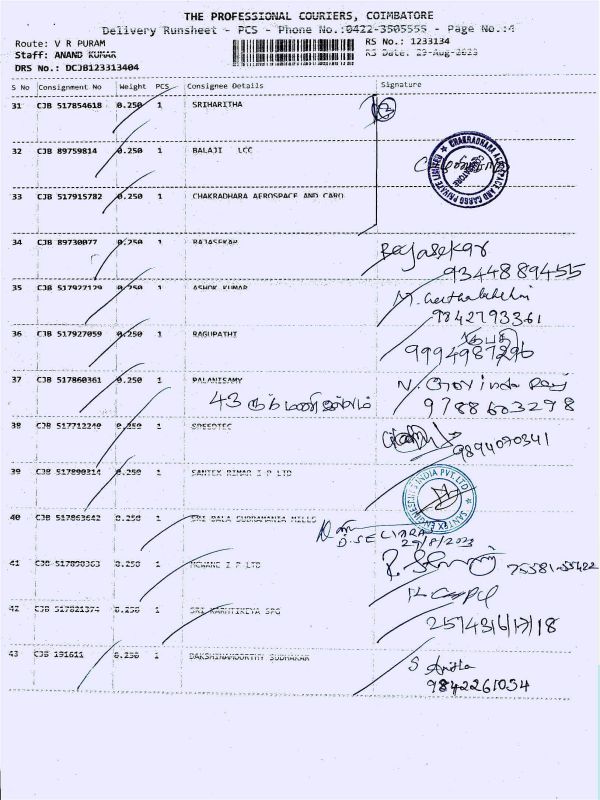 THE PROFESSIONAL COURIERS, COIMBATORE
Delivery Runsheet - PCS - Phone No.:0422-3505555 - Page No.:4
Route: V R PURAM RS No.: 1233134
Staff: ANAND KUMAR RS Date: 29-Aug-2023
DRS No.: DCJB123313404
S No Consignment No Weight PCS Consignee Details Signature
31 CJB 517854618 0.250 1 SRIHARITHA
32 CJB 89759814 0.250 1 BALAJI LCC
CHAKRADHARA AEROSPACE AND CARGO PRIVATE LIMITED
33 CJB 517915782 0.250 1 CHAKRADHARA AEROSPACE AND CARO
34 CJB 89730077 0.250 1 RAJASEKAR Rajasekar
9344889455
35 CJB 517927129 0.250 1 ASHOK KUMAR
9842793361
36 CJB 517927059 0.250 1 RAGUPATHI
9994987296
37 CJB 517860361 0.250 1 PALANISAMY N. Govinda Raj
43 9788603298
38 CJB 517712240 0.250 1 SPEEDTEC
9894090341
39 CJB 517890314 0.250 1 SANTEX RIMAR I P LTD
40 CJB 517863642 0.250 1 SRI BALA SUBRAMANIA MILLS
29/8/2023
41 CJB 517890363 0.250 1 MCWANE I P LTD
42 CJB 517821374 0.250 1 SRI KARHTIKEYA SPG
43 CJB 191611 0.250 1 DAKSHINAMOORTHY SUDHAKAR
9842261054